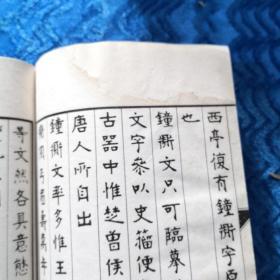 西亭復有鐘鼎字原
也
鐘鼎文只可臨摹
文字參以史籀便
古器中惟楚曾侯
唐人所自出
鐘鼎文率多惟王
等文然各具意態